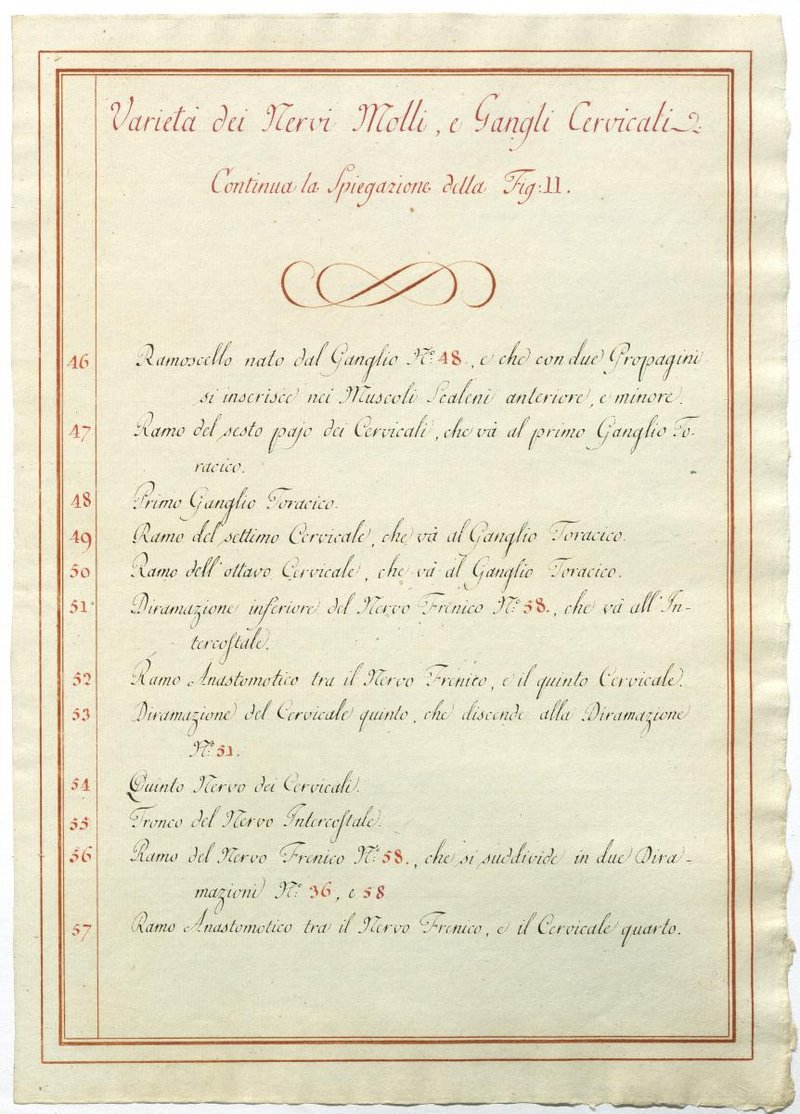 Varietà dei Nervi Molli, e Gangli Cervicali
Continua la Spiegazione della Fig: 11.
46 Ramoscello nato dal Ganglio N.º 48., e che con due Propagini
si inserisce nei Muscoli Scaleni anteriore, e minore.
47 Ramo del sesto pajo dei Cervicali, che và al primo Ganglio To-
racico.
48 Primo Ganglio Toracico.
49 Ramo del settimo Cervicale, che và al Ganglio Toracico.
50 Ramo dell'ottavo Cervicale, che và al Ganglio Toracico.
51 Diramazione inferiore del Nervo Frenico N.º 58., che và all'In-
tercoſtale.
52 Ramo Anastomotico tra il Nervo Frenico, e il quinto Cervicale.
53 Diramazione del Cervicale quinto, che discende alla Diramazione
N.º 51.
54 Quinto Nervo dei Cervicali.
55 Tronco del Nervo Intercoſtale.
56 Ramo del Nervo Frenico N.º 58., che si suddivide in due Dira-
mazioni N.º 36, e 58
57 Ramo Anastomotico tra il Nervo Frenico, e il Cervicale quarto.